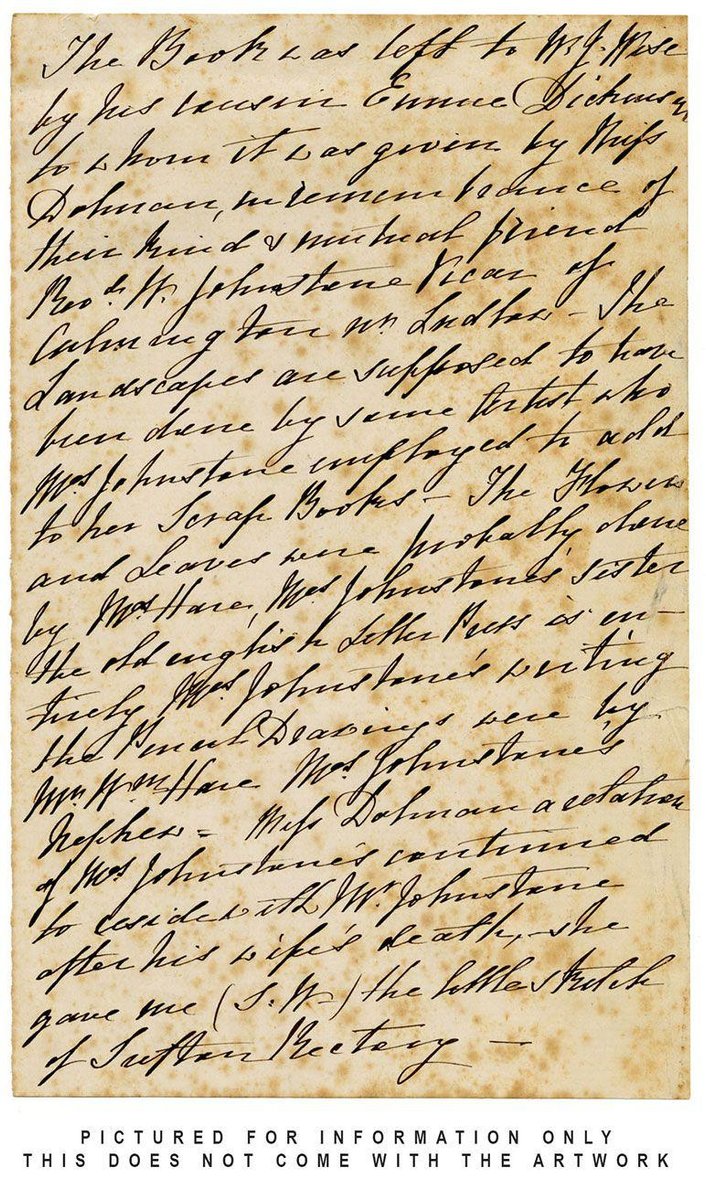 The Book was left to W. J. Wise
by his cousin Emma Dickinson,
to whom it was given by Miss
Dolman, in remembrance of
their kind & mutual friend
Revd. W. Johnstone Vicar of
Culmington nr. Ludlow - The
Landscapes are supposed to have
been done by some Artist who
Mrs Johnstone employed to add
to her Scrap Books - The Flowers
and Leaves were probably done
by Mrs Hare, Mrs Johnstone's sister
the old english Letter Press is en-
tirely Mrs Johnstone's writing
the Pencil Drawings were by
Mr Wm Hare Mrs Johnstone's
Nephew - Miss Dolman a relation
of Mrs Johnstone's continued
to reside with Mr Johnstone
after his wife's death, - she
gave me (S. W-) the little sketch
of Sutton Rectory -
PICTURED FOR INFORMATION ONLY
THIS DOES NOT COME WITH THE ARTWORK